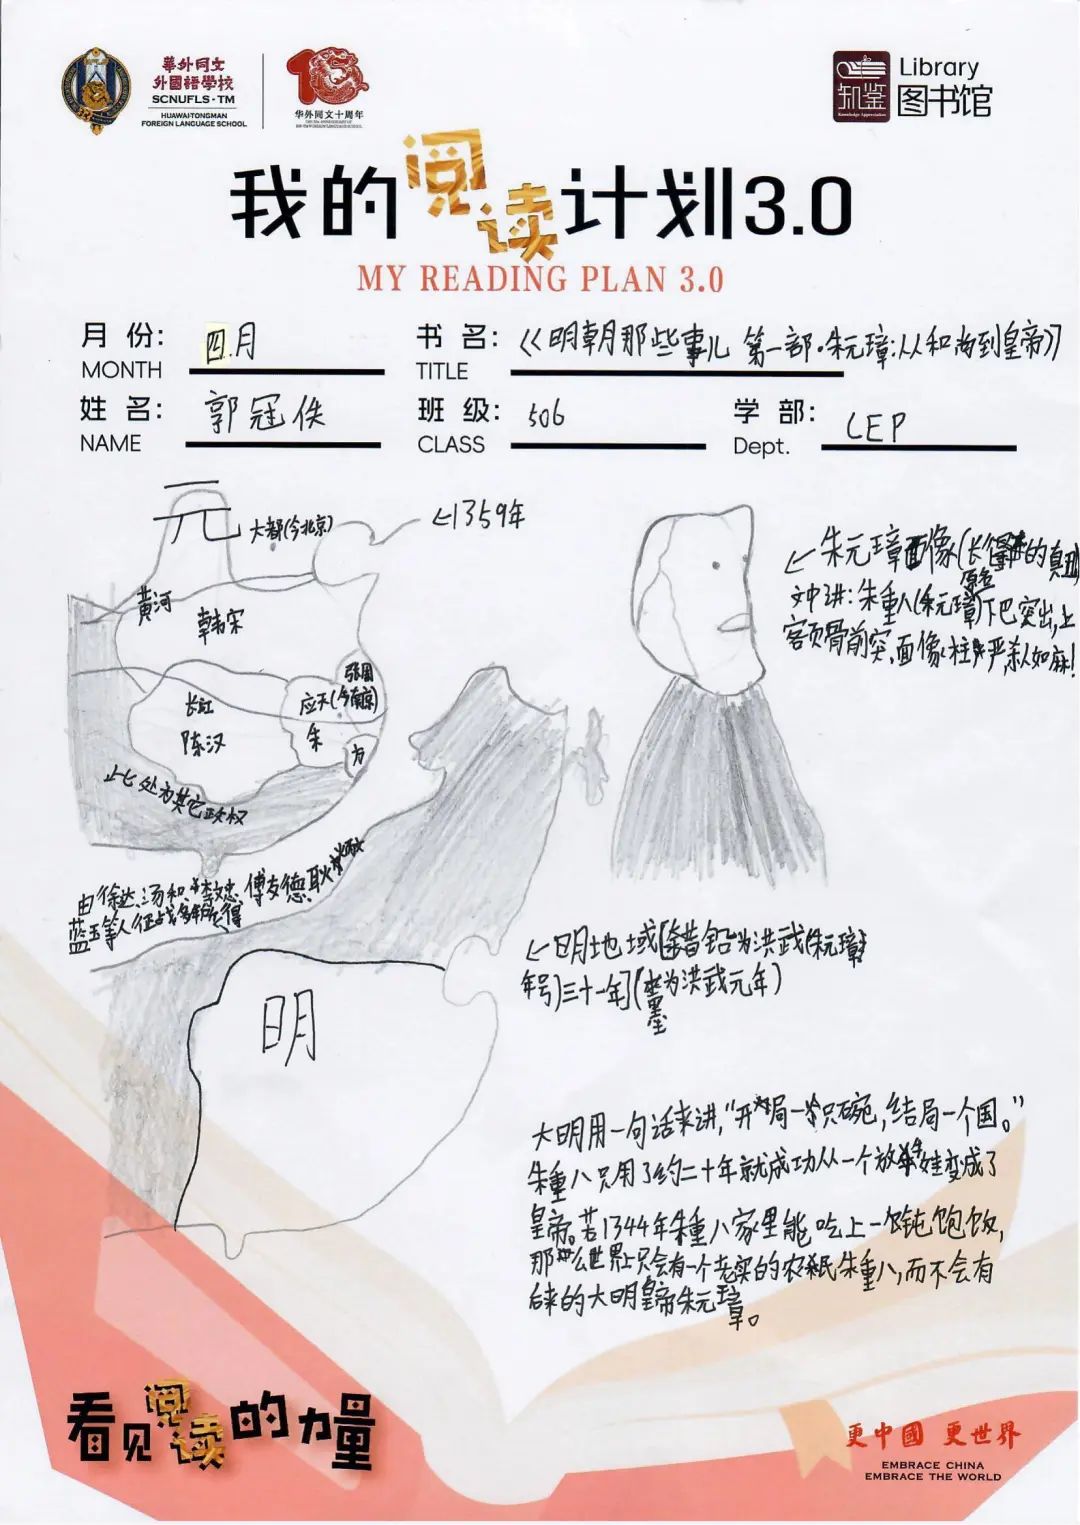 華外同文
外國語學校
SCNUFLS·TM
HUAWAI·TONGMAN
FOREIGN LANGUAGE SCHOOL
华外同文十周年
知鉴
Knowledge Appreciation
Library
图书馆
我的阅读计划3.0
MY READING PLAN 3.0
月份: 四月
MONTH
书名: 《明朝那些事儿 第一部·朱元璋:从和尚到皇帝》
TITLE
姓名: 郭冠佚
NAME
班级: 506
CLASS
学部: LEP
Dept.
元
大都(今北京)
←1359年
黄河
韩宋
长江
陈汉
张周
应天(今南京)
朱
方
此处为其它政权
←朱元璋画像(长得的真丑)
文中讲:朱重八(朱元璋原名)下巴突出,上
额骨前突,面像
严,杀人如麻!
由徐达、汤和、李文忠、傅友德、耿
蓝玉等人征战多年所得
明
←明地域[铅为洪武(朱元璋
年号)三十一年](墨为洪武元年)
大明用一句话来讲,“开局一只碗,结局一个国。”
朱重八只用了约二十年就成功从一个放牛娃变成了
皇帝。若1344年朱重八家里能吃上一顿饱饭,
那么世界上只会有一个老实的农民朱重八,而不会有
后来的大明皇帝朱元璋。
看见阅读的力量
更中國 更世界
EMBRACE CHINA
EMBRACE THE WORLD